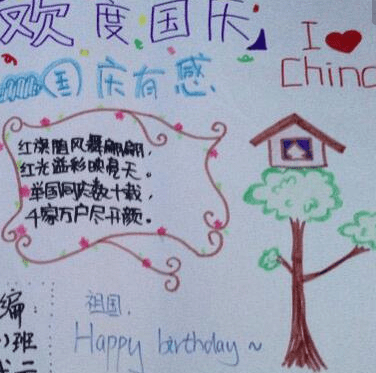 欢度国庆
I ❤
China
国庆有感
红旗随风舞翩翩，
红光溢彩映亮天。
举国同庆数十载，
千家万户尽开颜。
祖国，
Happy birthday ~
编：
班